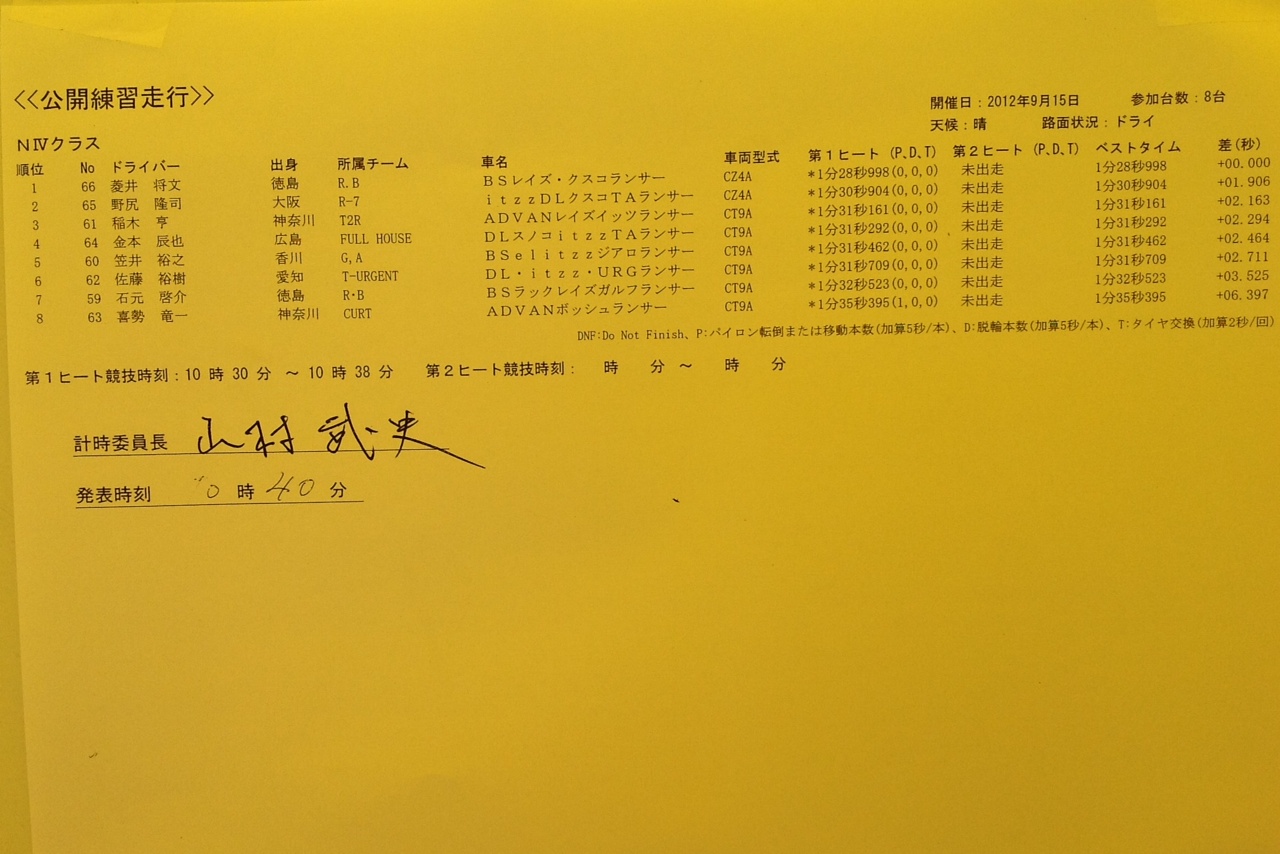 <<公開練習走行>>
開催日：2012年9月15日 参加台数：8台
天候：晴 路面状況：ドライ
NⅣクラス
順位 No ドライバー 出身 所属チーム 車名 車両型式 第１ヒート (P、D、T) 第２ヒート (P、D、T) ベストタイム 差(秒)
1 66 菱井 将文 徳島 R.B ＢＳレイズ・クスコランサー CZ4A *1分28秒998(0,0,0) 未出走 1分28秒998 +00.000
2 65 野尻 隆司 大阪 R-7 ｉｔｚｚＤＬクスコＴＡランサー CZ4A *1分30秒904(0,0,0) 未出走 1分30秒904 +01.906
3 61 稲木 亨 神奈川 T2R ＡＤＶＡＮレイズイッツランサー CT9A *1分31秒161(0,0,0) 未出走 1分31秒161 +02.163
4 64 金本 辰也 広島 FULL HOUSE ＤＬスノコｉｔｚｚＴＡランサー CT9A *1分31秒292(0,0,0) 未出走 1分31秒292 +02.294
5 60 笠井 裕之 香川 G,A ＢＳｅｌｉｔｚｚジアロランサー CT9A *1分31秒462(0,0,0) 未出走 1分31秒462 +02.464
6 62 佐藤 裕樹 愛知 T-URGENT ＤＬ・ｉｔｚｚ・ＵＲＧランサー CT9A *1分31秒709(0,0,0) 未出走 1分31秒709 +02.711
7 59 石元 啓介 徳島 R･B ＢＳラックレイズガルフランサー CT9A *1分32秒523(0,0,0) 未出走 1分32秒523 +03.525
8 63 喜勢 竜一 神奈川 CURT ＡＤＶＡＮボッシュランサー CT9A *1分35秒395(1,0,0) 未出走 1分35秒395 +06.397
DNF:Do Not Finish、P:パイロン転倒または移動本数(加算5秒/本)、D:脱輪本数(加算5秒/本)、T:タイヤ交換(加算2秒/回)
第１ヒート競技時刻：10 時 30 分 ～ 10 時 38 分 第２ヒート競技時刻： 時 分 ～ 時 分
計時委員長 山村 武史
発表時刻 10 時 40 分